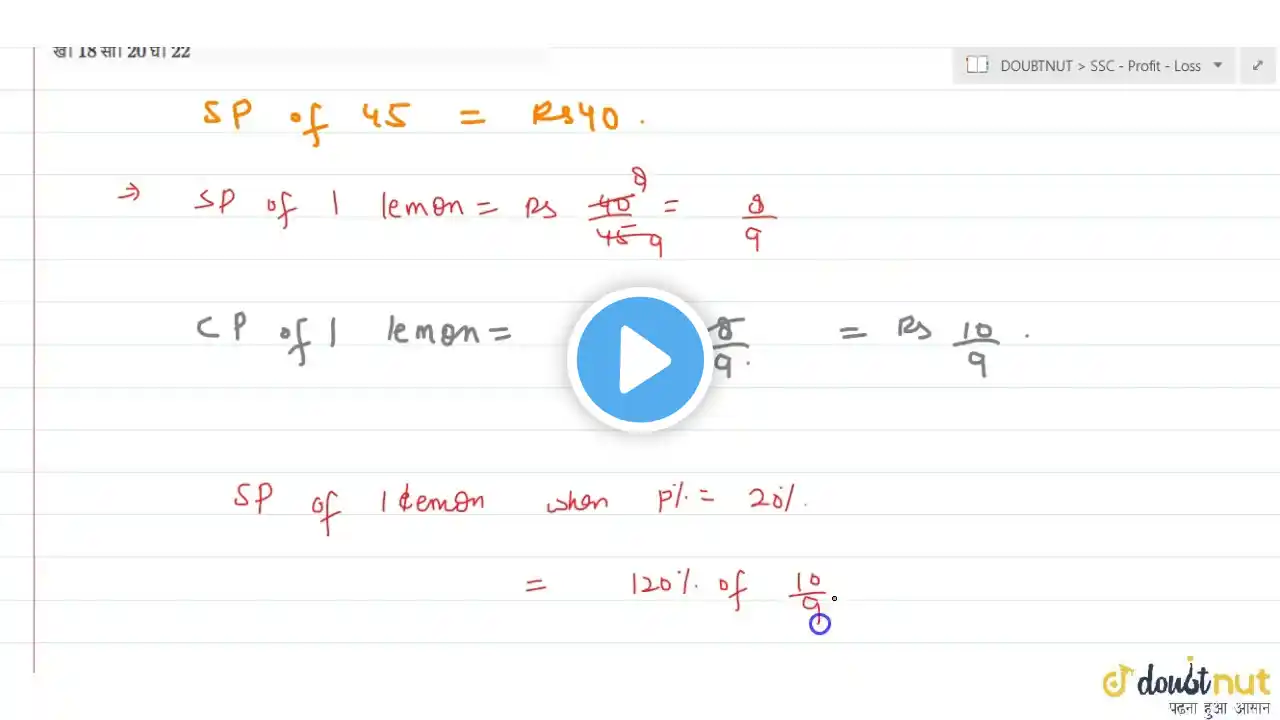 खा 18 सा 20 घा 22
DOUBTNUT > SSC - Profit - Loss
SP of 45 = Rs 40.
⇒ SP of 1 lemon = Rs 40/45 8 9 = 8/9
CP of 1 lemon = 8/9. = Rs 10/9.
SP of 1 lemon when P% = 20%.
= 120% of 10/9
doubtnut
पढ़ना हुआ आसान